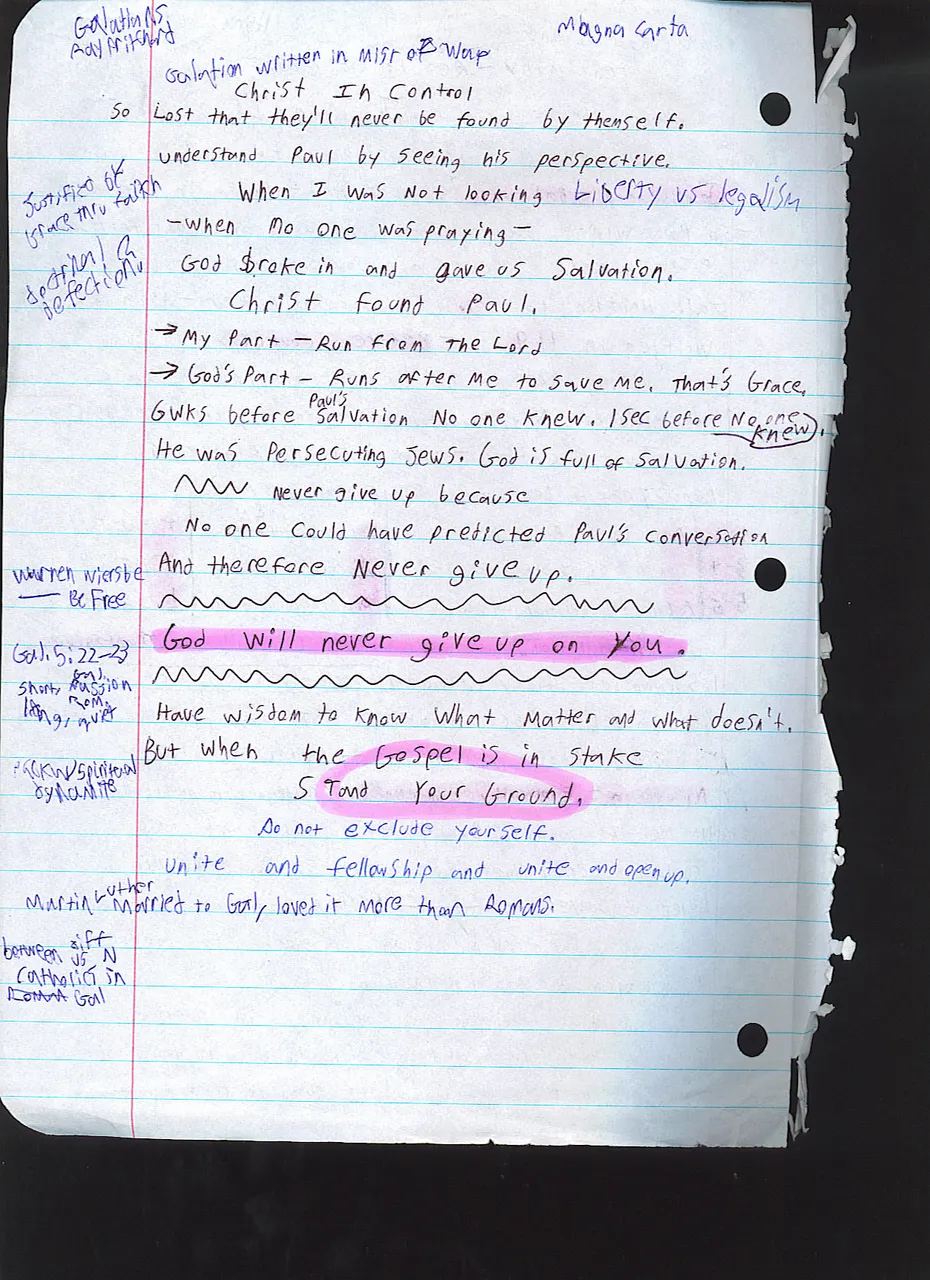 Galathians
Ray Pritchard
Magna Carta
Galation written in midst of War
Christ In Control
So Lost that they'll never be found by themself.
understand Paul by seeing his perspective.
When I was Not looking Liberty vs legalism
Justified by
Grace thru faith
-When no one was praying-
God Broke in and gave us Salvation.
doctrinal &
Christ found Paul.
→ My Part - Run from The Lord
→ God's Part - Runs after Me to save Me. That's Grace.
6wks before Paul's Salvation No one knew. 1sec before No one
knew.
He was Persecuting Jews. God is full of Salvation.
Never give up because
No one Could have predicted Paul's conversation
And therefore Never give up.
Warren Wiersbe
— Be Free
God will never give up on You.
Gal. 5:22-23
short, passion Gal.
long, quiet Rom.
Have wisdom to know What Matter and what doesn't.
But when the Gospel is in stake
STand Your Ground.
Spiritual
dynamite
Do not exclude yourself.
unite and fellowship and unite and open up.
Martin Luther Married to Gal, loved it more than Romans.
diff
between us N
Catholics in
Gal